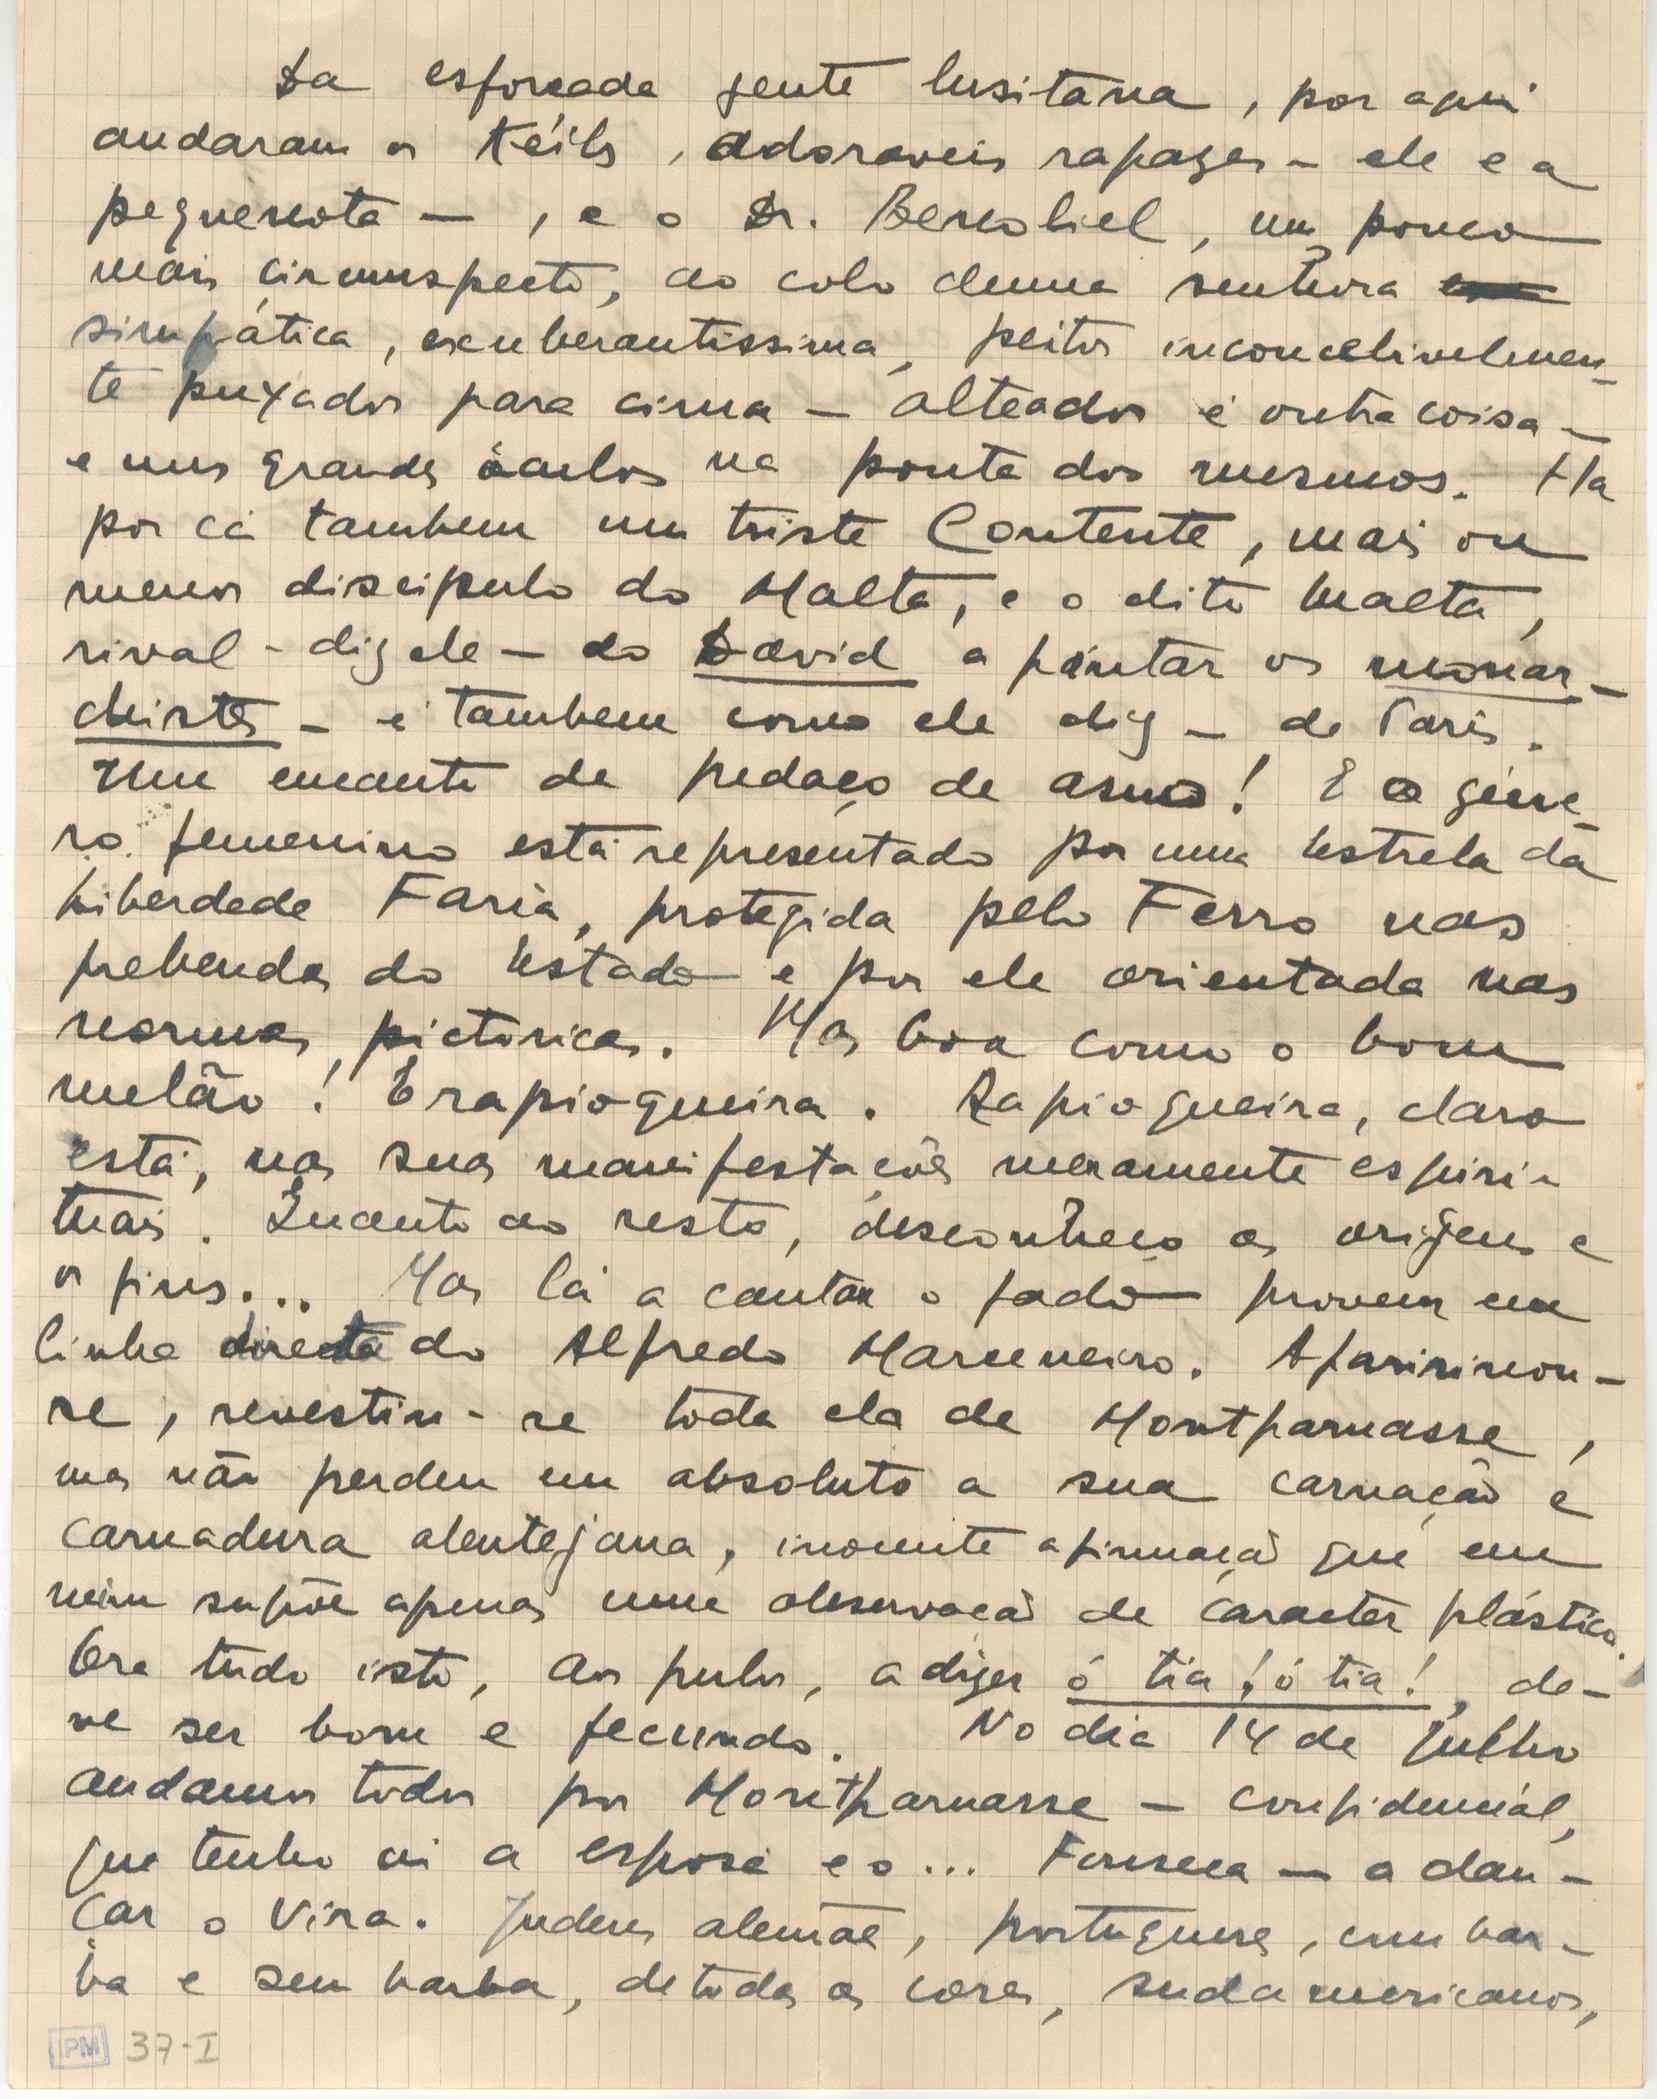 Da esforçada gente lusitana, por aqui
andaram os Keils, adoraveis rapazes – ele e a
pequenota – , e o Dr. Benoliel, um pouco
mais circunspecto, ao colo duma senhora
simpática, exuberantissima, peitos inconcebivelmen-
te puxados para cima – alteados é outra coisa –
e uns grandes óculos na ponta dos mesmos. Ha
por cá tambem um triste Contente, mais ou
menos discipulo do Malta, e o dito Malta,
rival – diz ele – do David a pintar os monar-
chistes – é tambem como ele diz – de Paris.
Um encanto de pedaço de asno! E o géne-
ro femenino está representado por uma Estrela da
Liberdade Faria, protegida pelo Ferro nas
prebendas do Estado e por ele orientada nas
normas pictoricas. Mas boa como o bom
melão! E rapioqueira. Rapioqueira, claro
está, nas suas manifestações meramente espiri-
tuais. Quanto ao resto, desconheço as origens e
os fins... Mas lá a cantar o fado provem em
linha directa do Alfredo Marceneiro. Aparisinou-
se, revestiu-se toda ela de Montparnasse,
mas não perdeu em absoluto a sua carnação e
carnadura alentejana, inocente afirmação que em
mim supõe apenas uma observação de caracter plástico.
Ora tudo isto, aos pulos, a dizer ó tia! ó tia!, de-
ve ser bom e fecundo. No dia 14 de Julho
andamos todos por Montparnasse – confidencial,
que tenho aí a esposa e o... Fonseca – a dan-
çar o Vira. Judeus alemães, portugueses, com bar-
ba e sem barba, de todas as cores, sudamericanos,
PM 37-I